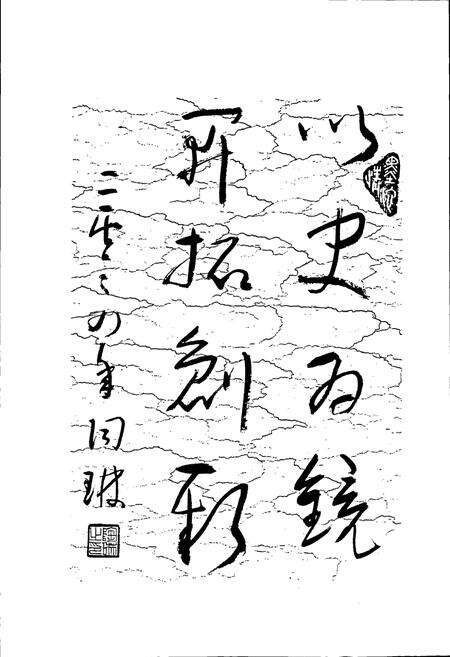 以史为镜
开拓创新
二〇〇四年